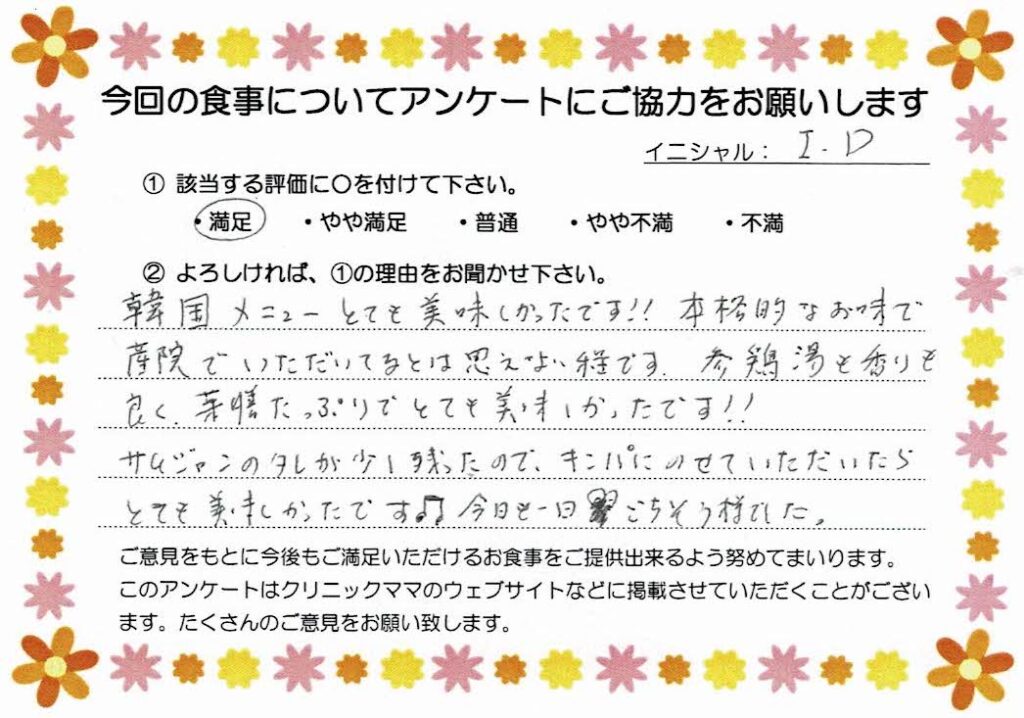 今回の食事についてアンケートにご協力をお願いします
イニシャル： I.D
① 該当する評価に○を付けて下さい。
・満足 ・やや満足 ・普通 ・やや不満 ・不満
② よろしければ、①の理由をお聞かせ下さい。
韓国メニューとても美味しかったです!! 本格的なお味で
産院でいただいてるとは思えない程です. 参鶏湯も香りも
良く、薬膳たっぷりでとても美味しかったです!!
サムジャンのタレが少し残ったので、キンパにのせていただいたら
とても美味しかったです♫ 今日も一日ごちそう様でした。
ご意見をもとに今後もご満足いただけるお食事をご提供出来るよう努めてまいります。
このアンケートはクリニックママのウェブサイトなどに掲載させていただくことがござい
ます。たくさんのご意見をお願い致します。